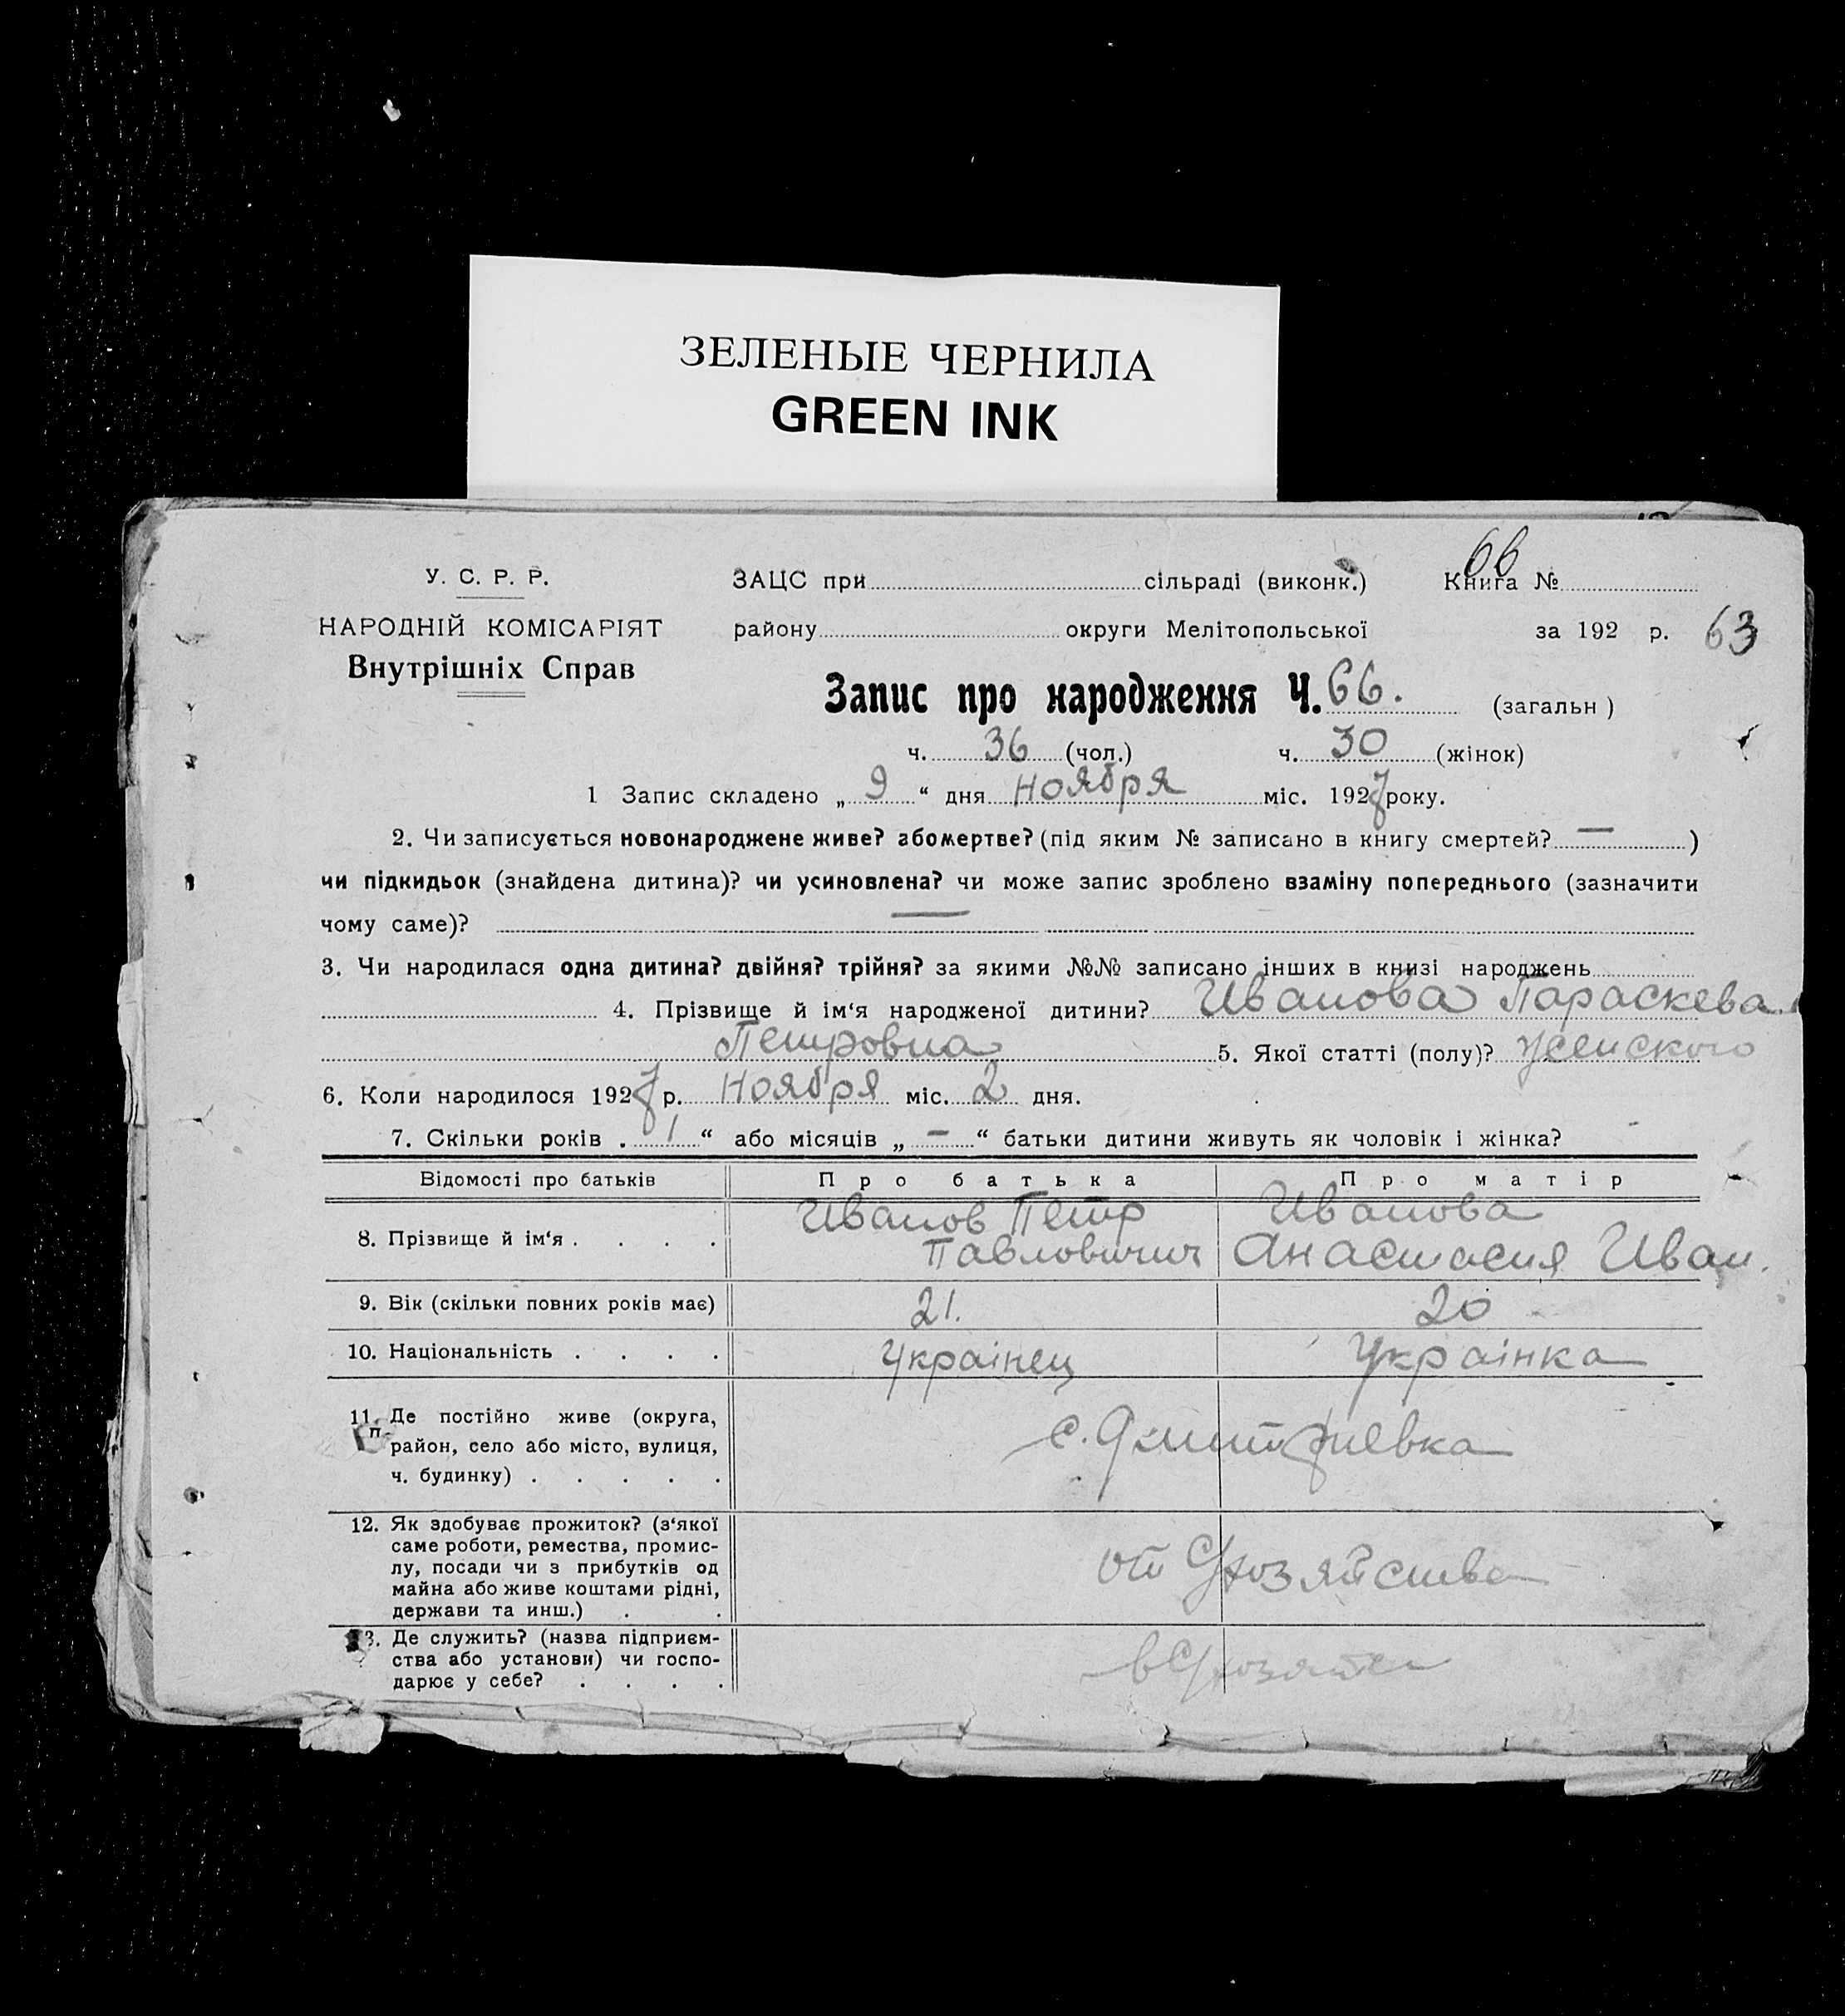 ЗЕЛЕНЫЕ ЧЕРНИЛА
GREEN INK
66
У. С. Р. Р.
ЗАЦС при сільраді (виконк.) Книга №
НАРОДНІЙ КОМІСАРІЯТ
району округи Мелітопольської за 192 р. 63
Внутрішніх Справ
Запис про народження Ч. 66. (загальн )
ч. 36 (чол.) ч. 30 (жінок)
1 Запис складено „ 9 “ дня ноября міс. 1927 року.
2. Чи записується новонароджене живе? або мертве? (під яким № записано в книгу смертей? — )
чи підкидьок (знайдена дитина)? чи усиновлена? чи може запис зроблено взаміну попереднього (зазначити
чому саме)? —
3. Чи народилася одна дитина? двійня? трійня? за якими №№ записано інших в книзі народжень
4. Прізвище й ім‘я народженої дитини? Иванова Параскева
Петровна 5. Якої статті (полу)? женского
6. Коли народилося 1927 р. ноября міс. 2 дня.
7. Скільки років . 1 “ або місяців „ – “ батьки дитини живуть як чоловік і жінка?
Відомості про батьків Про батька Про матір
8. Прізвище й ім‘я . . . . Иванов Петр Павлович Иванова Анастасия Иван.
9. Вік (скільки повних років має) 21. 20
10. Національність . . . . Украінец Украінка
11. Де постійно живе (округа,
п. район, село або місто, вулиця,
ч. будинку) . . . . .
с. Дмитриевка
12. Як здобуває прожиток? (з‘якої
саме роботи, ремества, промис-
лу, посади чи з прибутків од
майна або живе коштами рідні,
держави та инш.) . .
от С/хозяйства
13. Де служить? (назва підприєм-
ства або установи) чи госпо-
дарює у себе? . . . .
в С/хозяйс